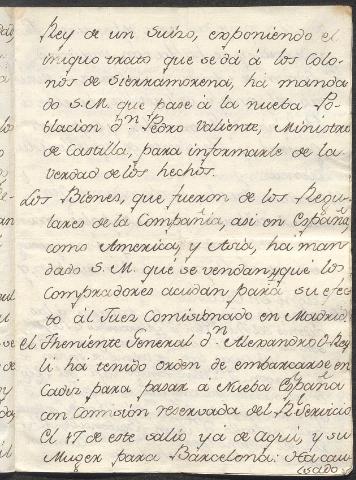 Rey de un Suizo, exponiendo el
iniquo trato que se dá á los Colo-
nos de Sierramorena, há manda
do S.M. que pase á la nueba Po-
blacion dn. Pedro Valiente, Ministro
de Castilla, para informarle de la
verdad de los hechos.
Los Bienes, que fueron de los Regu-
lares de la Compañia, asi en España
como America, y Asia, há man
dado S.M. que se vendan, y que los
Compradores acudan para su efec
to ál Juez Comisionado en Madrid.
el Theniente General dn. Alexandro O-Rey
li há tenido orden de embarcarse en
Cadiz para pasar á Nueba España
con Comision reservada del Rl. Servicio
El 17 de este salió yá de Aqui, y su
Muger para Barcelona: Há cau
sado